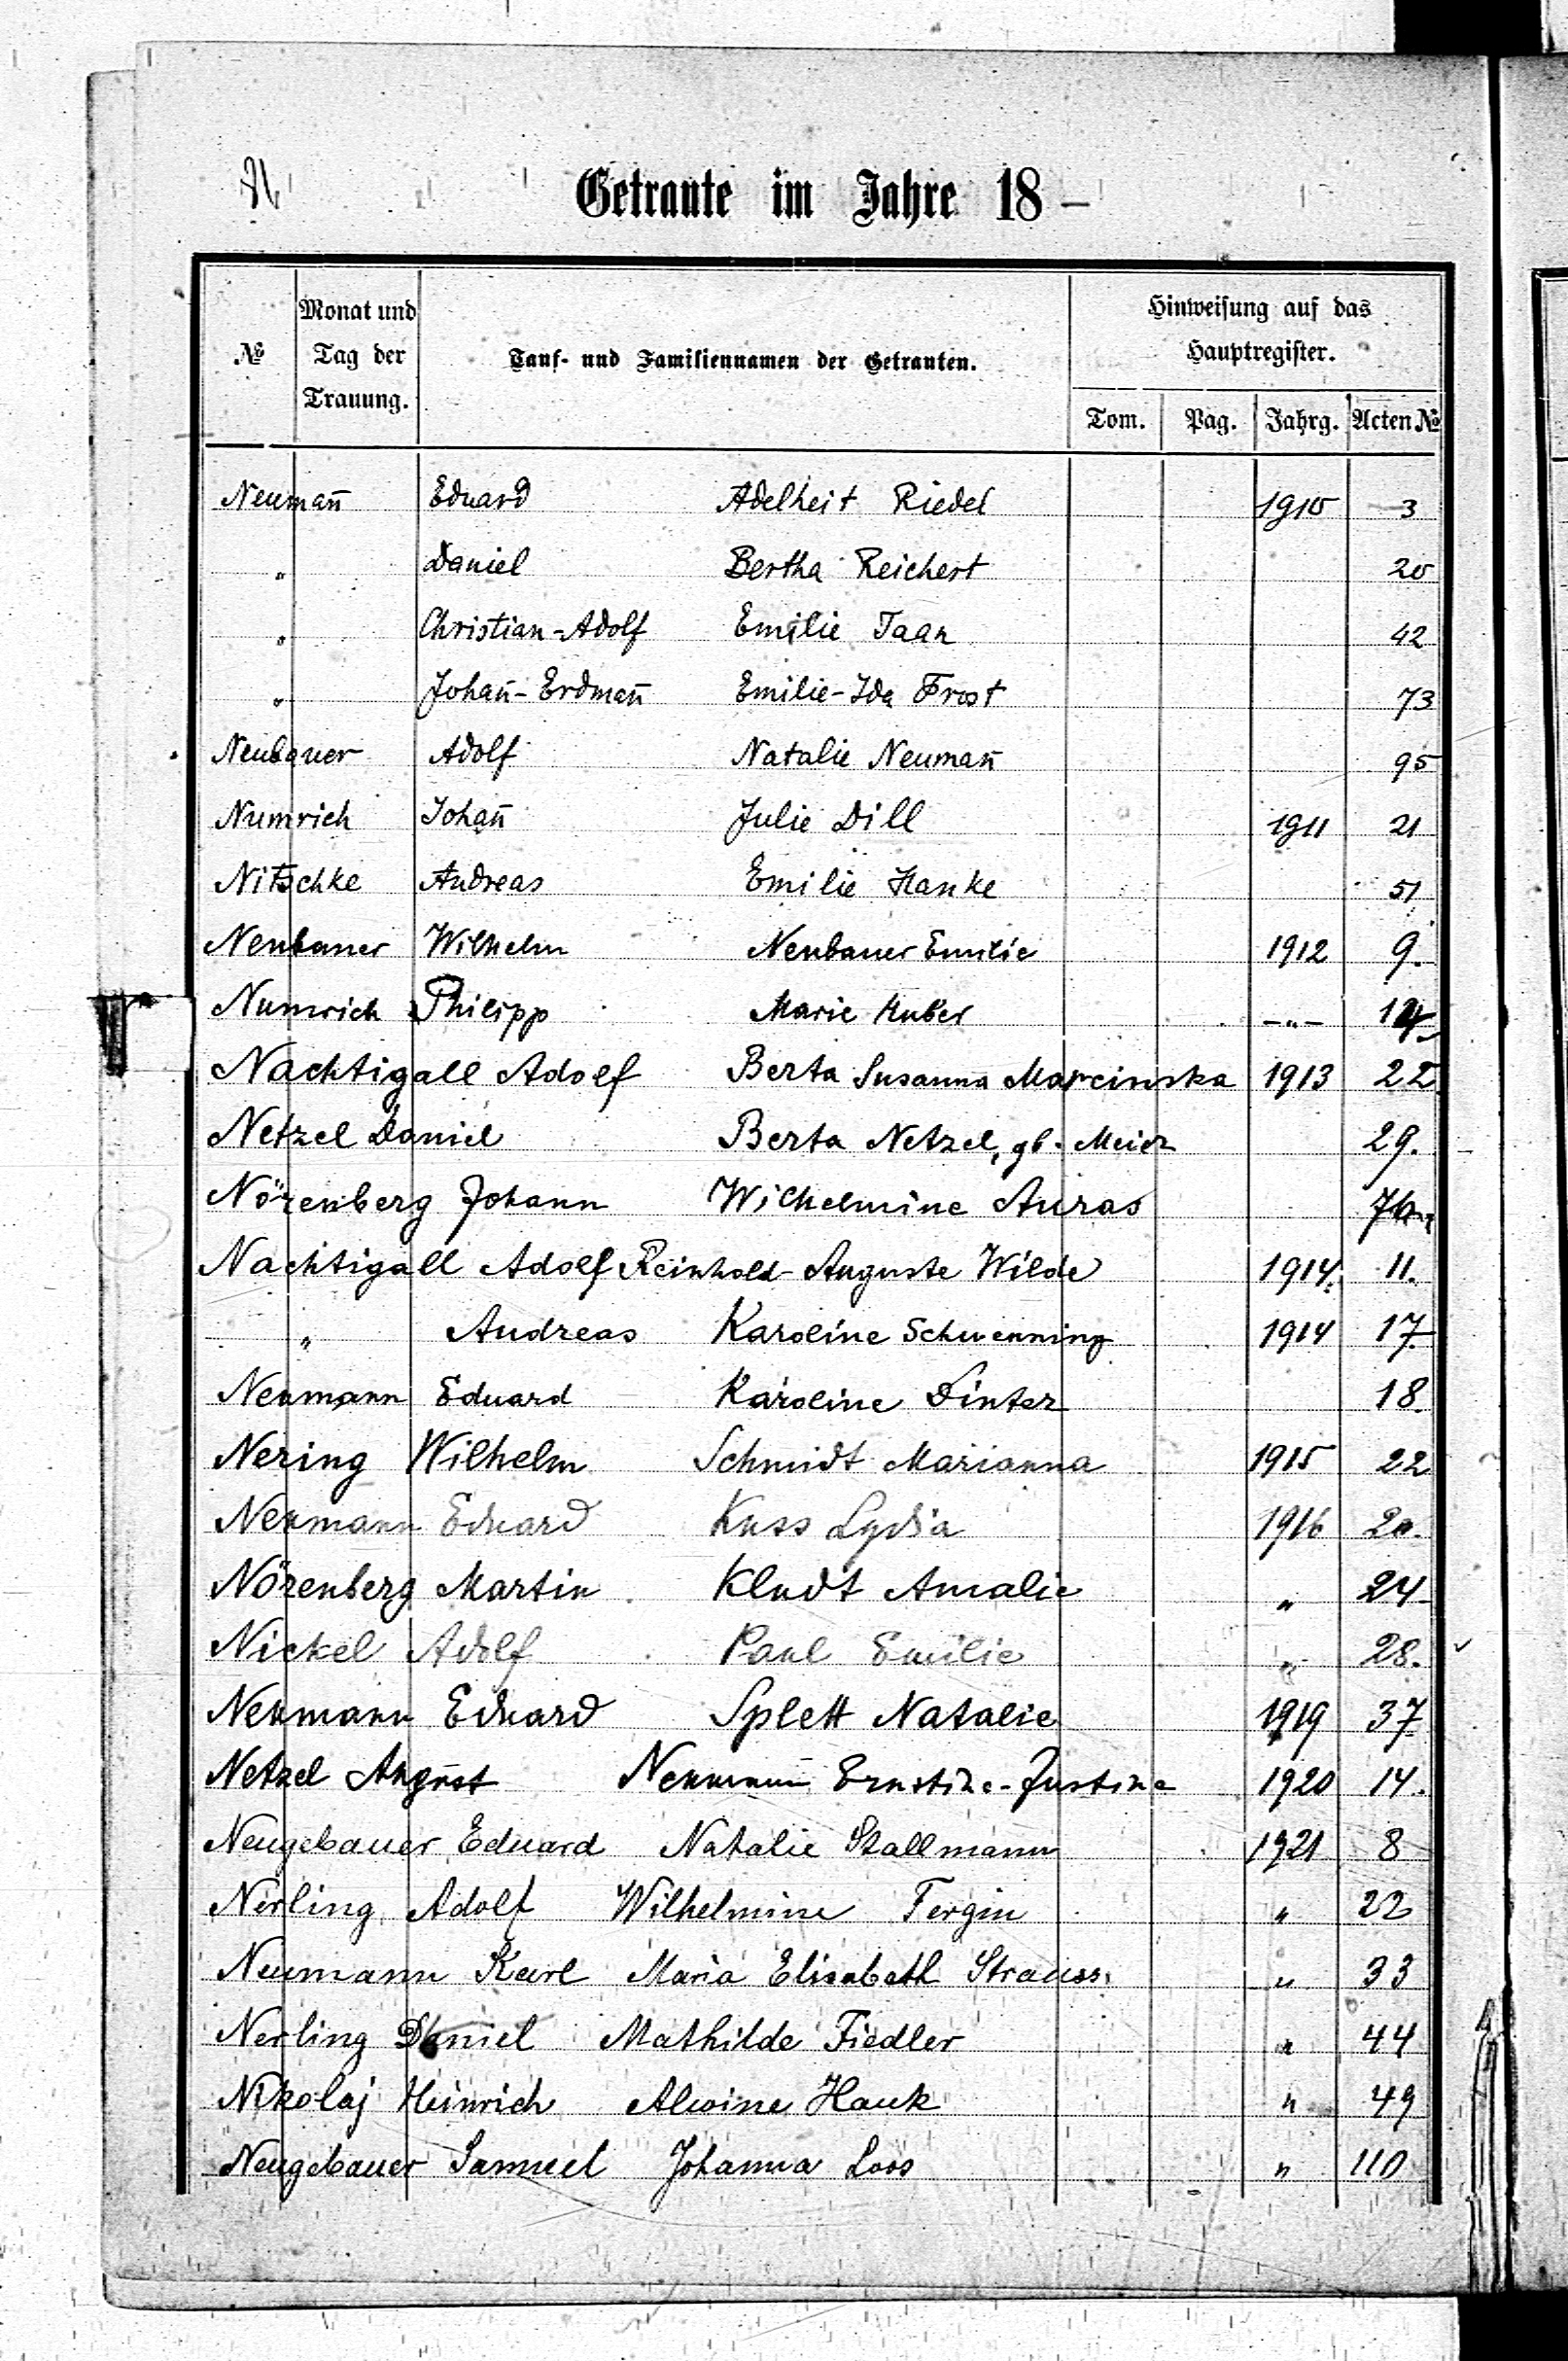 N
Getraute im Jahre 18 –
№ Monat und Tag der Trauung. Tauf- und Familiennamen der Getrauten. Hinweisung auf das Hauptregister.
Tom. Pag. Jahrg. Acten №
Neuman̅ Eduard Adelheit Riedel 1910 3
" Daniel Bertha Reichert 20
" Christian-Adolf Emilie Jaan 42
" Johan̅-Erdman̅ Emilie-Ida Frost 73
Neubauer Adolf Natalie Neuman̅ 95
Numrich Johan̅ Julie Dill 1911 21
Nitschke Andreas Emilie Hanke 51
Neubauer Wilhelm Neubauer Emilie 1912 9.
Numrich Philipp Marie Huber –"– 14
Nachtigall Adolf Berta Susanna Marcinska 1913 22
Netzel Daniel Berta Netzel, gb. Meier 29.
Nörenberg Johann Wilhelmine Auras
Nachtigall Adolf Reinhold - Auguste Wilde 1914. 11.
" Andreas Karoline Schwenning 1914 17.
Neumann Eduard Karoline Dinter 18.
Nering Wilhelm Schmidt Marianna 1915 22
Neumann Eduard Kuss Lydia 1916 20.
Nörenberg Martin Kludt Amalie " 24
Nickel Adolf Paul Emilie " 28.
Neumann Eduard Splett Natalie 1919 37
Netzel August Neumann Ernstine-Justine 1920 14.
Neugebauer Eduard Natalie Stallmann 1921 8
Nerling Adolf Wilhelmine Fergin " 22
Neumann Karl Maria Elisabeth Strauss. " 33
Nerling Daniel Mathilde Fiedler " 44
Nikolaj Heinrich Alwine Hauk " 49
Neugebauer Samuel Johanna Loos " 110